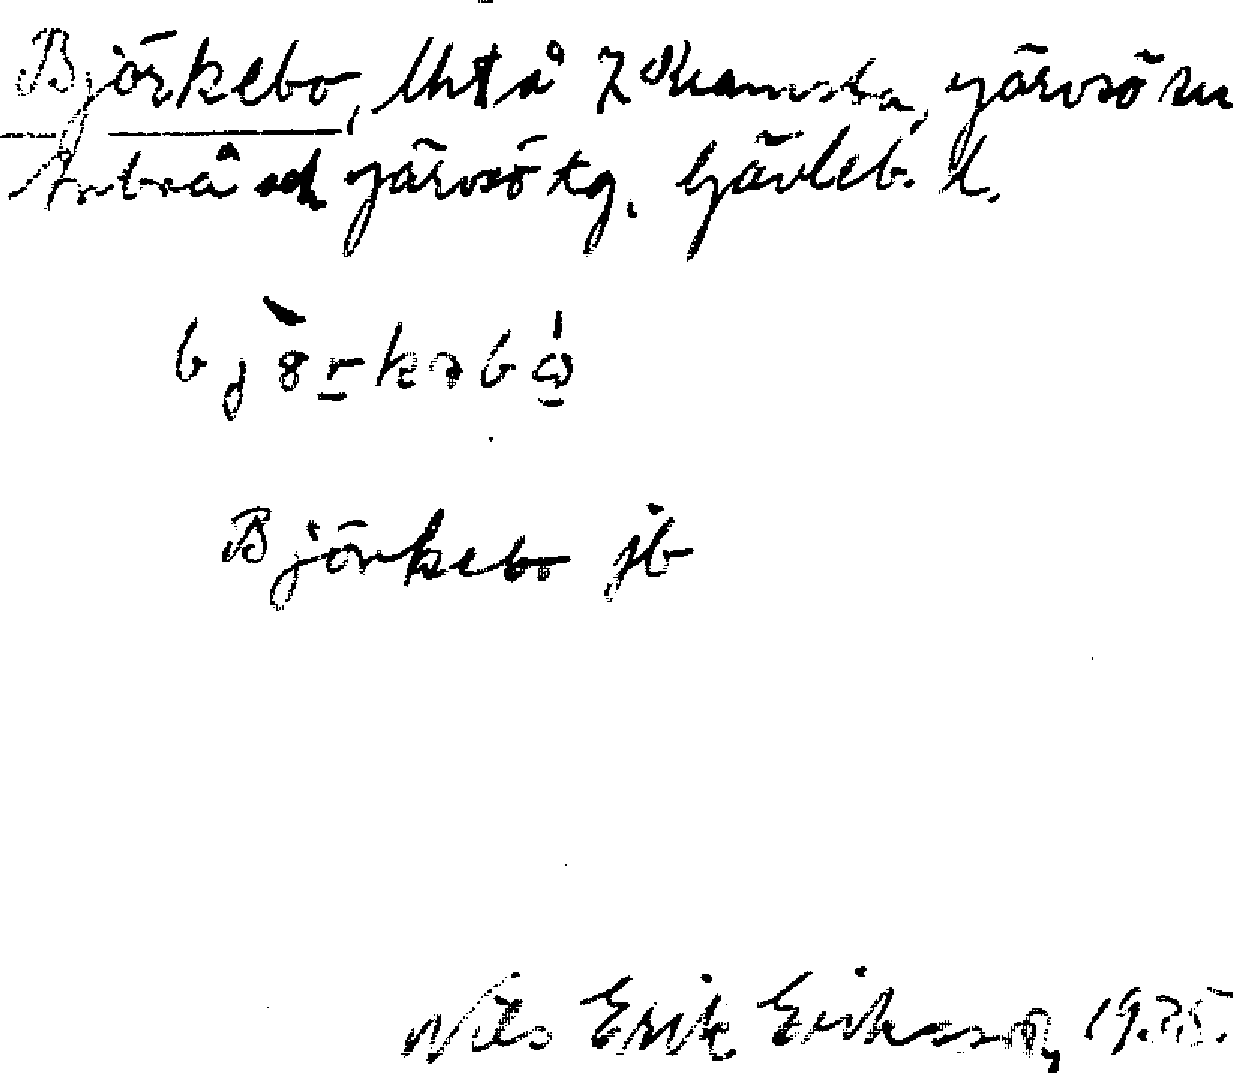 Björkebo, lht å 7 Kramsta, Järvsö sn
Arbrå och Järvsö tg. Gävleb. l.
björkəbω
Björkebo jb
Nils Erik Eriksson, 1935.